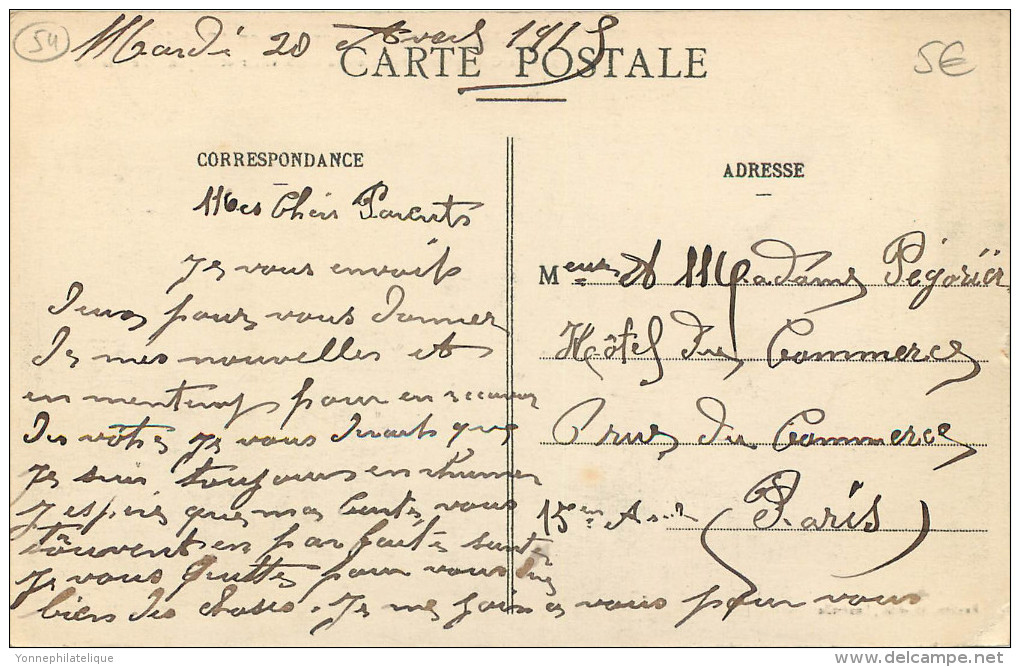 54
Mardi 20 Avril 1915
5€
CARTE POSTALE
CORRESPONDANCE
ADRESSE
Mes Chers Parents
Je vous envois
pour vous donner
de mes nouvelles et
en même temps pour en recevoir
des vôtres je vous que
je suis toujours enrhumer
J'espère que ma carte vous
trouvent en parfaite santé
Je vous quitte pour vous dire
bien des choses. Je me a vous pour vous
Meur et Madame Pégorier
Hôtel du Commerce
rue du Commerce
15em Arr
(Paris)
Yonnephilatelique
delcampe.net